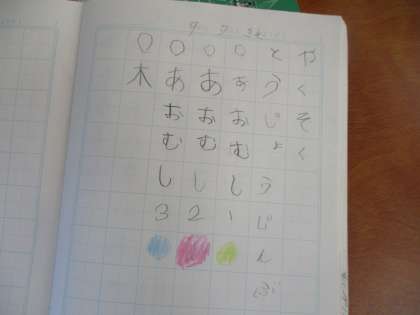 やくそく
とうじょうじんぶ
○あおむし1
○あおむし2
○あおむし3
○木